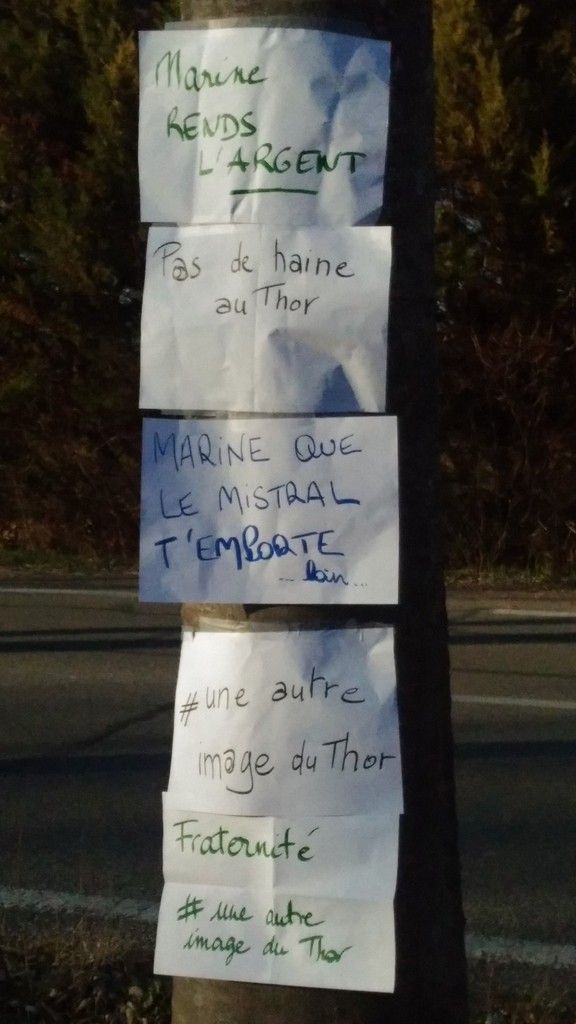 Marine
RENDS
L'ARGENT
Pas de haine
au Thor
MARINE QUE
LE MISTRAL
T'EMPORTE
... loin...
#une autre
image du Thor
Fraternité
# une autre
image du Thor